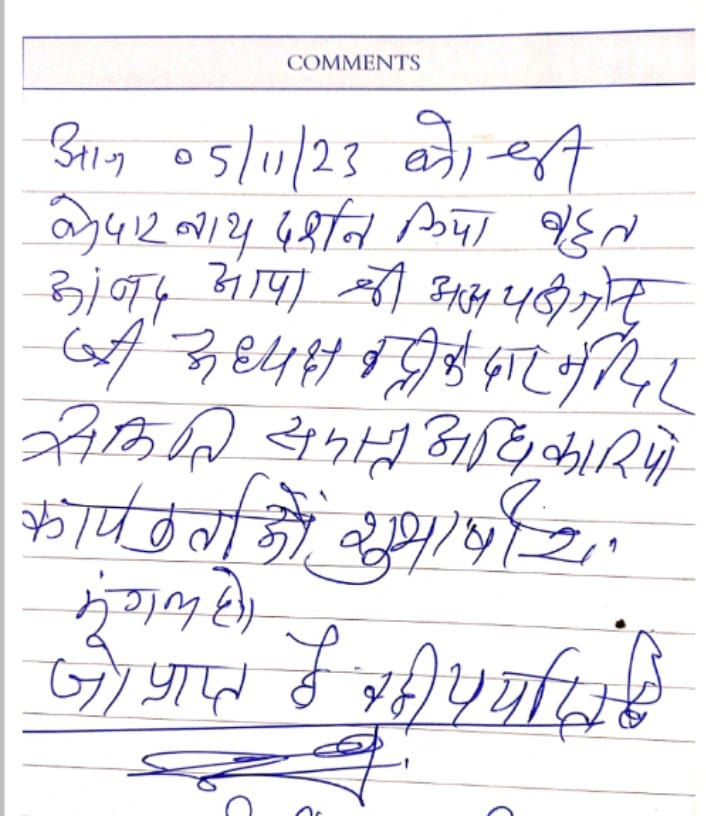 COMMENTS
आज 05/11/23 को श्री
केदार नाथ दर्शन किया बहुत
आंनद आया श्री अजय
जी अध्यक्ष बद्रीकेदार मंदिर
समिति समस्त अधिकारियो
कार्यकर्ताओं शुभाषीश
मंगल हो
जो प्राप्त है वही पर्याप्त है